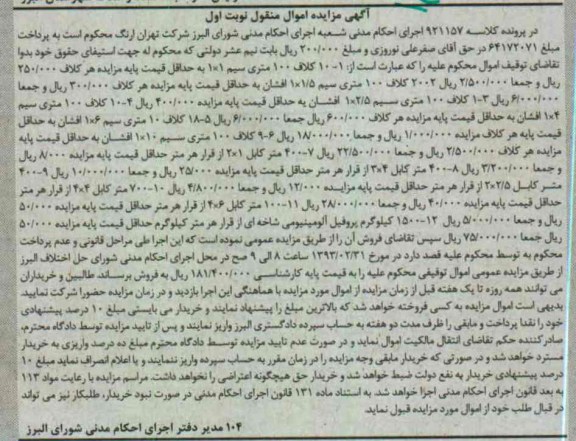 آگهی مزایده اموال منقول نوبت اول
در پرونده کلاسه ۹۲۱۱۵۷ اجرای احکام مدنی شعبه اجرای احکام مدنی شورای البرز شرکت تهران ارنگ محکوم است به پرداخت
مبلغ ۶۴۱۷۲۰۷۱ در حق آقای صفرعلی نوروزی و مبلغ ۲۰۰/۰۰۰ ریال بابت نیم عشر دولتی که محکوم له جهت استیفای حقوق خود بدوا
تقاضای توقیف اموال محکوم علیه را که عبارت است از: ۱-۱۰ کلاف ۱۰۰ متری سیم ۱×۱ به حداقل قیمت پایه مزایده هر کلاف ۲۵۰/۰۰۰
ریال و جمعا ۲/۵۰۰/۰۰۰ ریال ۲-۲۰ کلاف ۱۰۰ متری سیم ۱/۵×۱ افشان به حداقل قیمت پایه مزایده هر کلاف ۳۰۰/۰۰۰ ریال و جمعا
۶/۰۰۰/۰۰۰ ریال ۳-۱ کلاف ۱۰۰ متری سیم ۲/۵×۱ افشان به حداقل قیمت پایه مزایده ۴۰۰/۰۰۰ ریال ۴-۱۰ کلاف ۱۰۰ متری سیم
۴×۱ افشان به حداقل قیمت پایه مزایده هر کلاف ۶۰۰/۰۰۰ ریال جمعا ۶/۰۰۰/۰۰۰ ریال ۵-۱۸ کلاف ۱۰ متری سیم ۶×۱ افشان به حداقل
قیمت پایه هر کلاف مزایده ۱/۰۰۰/۰۰۰ ریال و جمعا ۱۸/۰۰۰/۰۰۰ ریال ۶-۹ کلاف ۱۰۰ متری سیم ۱۰×۱ افشان به حداقل قیمت پایه
مزایده هر کلاف ۲/۵۰۰/۰۰۰ ریال و جمعا ۲۲/۵۰۰/۰۰۰ ریال ۷-۴۰۰ متر کابل ۱×۲ از قرار هر متر حداقل قیمت پایه مزایده ۸/۰۰۰ ریال
و جمعا ۳/۲۰۰/۰۰۰ ریال ۸-۴۰۰ متر کابل ۴×۳ از قرار هر متر حداقل قیمت پایه مزایده ۲۵/۰۰۰ ریال و جمعا ۱۰/۰۰۰/۰۰۰ ریال ۹-۴۰۰
متر کابل ۲/۵×۲ از قرار هر متر حداقل قیمت پایه مزایده ۱۲/۰۰۰ ریال و جمعا ۴/۸۰۰/۰۰۰ ریال ۱۰-۷۰۰ متر کابل ۴×۴ از قرار هر متر
حداقل قیمت پایه مزایده ۴۰/۰۰۰ ریال و جمعا ۲۸/۰۰۰/۰۰۰ ریال ۱۱-۱۰۰ متر کابل ۶×۴ از قرار هر متر حداقل قیمت پایه مزایده ۵۰/۰۰۰
ریال و جمعا ۵/۰۰۰/۰۰۰ ریال ۱۲-۱۵۰۰ کیلوگرم پروفیل آلومینیومی شاخه ای از قرار هر متر کیلوگرم حداقل قیمت پایه مزایده ۵۰/۰۰۰
ریال جمعا ۷۵/۰۰۰/۰۰۰ ریال سپس تقاضای فروش آن را از طریق مزایده عمومی نموده است که این اجرا طی مراحل قانونی و عدم پرداخت
محکوم به توسط محکوم علیه قصد دارد در مورخ ۱۳۹۳/۰۲/۳۱ ساعت ۸ الی ۹ صبح در محل اجرای احکام مدنی شورای حل اختلاف البرز
از طریق مزایده عمومی اموال توقیفی محکوم علیه را به قیمت پایه کارشناسی ۱۸۱/۴۰۰/۰۰۰ ریال به فروش برساند. طالبین و خریداران
می توانند همه روزه تا یک هفته قبل از زمان مزایده از اموال مورد مزایده با هماهنگی این اجرا بازدید و در زمان مزایده حضورا شرکت نمایید.
بدیهی است اموال مزایده به کسی فروخته خواهد شد که بالاترین مبلغ را پیشنهاد نمایند و خریدار می بایستی مبلغ ۱۰ درصد پیشنهادی
خود را نقدا پرداخت و مابقی را ظرف مدت دو هفته به حساب سپرده دادگستری البرز واریز نمایند و پس از تایید مزایده توسط دادگاه محترم،
صادر کننده حکم تقاضای انتقال مالکیت اموال نماید و در صورت عدم تایید مزایده توسط دادگاه محترم مبلغ ده درصد واریزی به خریدار
مسترد خواهد شد و در صورتی که خریدار مابقی وجه مزایده را در زمان مقرر به حساب سپرده واریز ننمایند و یا اعلام انصراف نماید مبلغ ۱۰
درصد پیشنهادی خریدار به نفع دولت ضبط خواهد شد و خریدار حق هیچگونه اعتراضی را نخواهد داشت. مراسم مزایده با رعایت مواد ۱۱۳
به بعد قانون اجرای احکام مدنی اجرا خواهد شد. به استناد ماده ۱۳۱ قانون اجرای احکام مدنی در صورت نبود خریدار، طلبکار نیز می تواند
در قبال طلب خود از اموال مورد مزایده قبول نماید.
۱۰۴ مدیر دفتر اجرای احکام مدنی شورای البرز